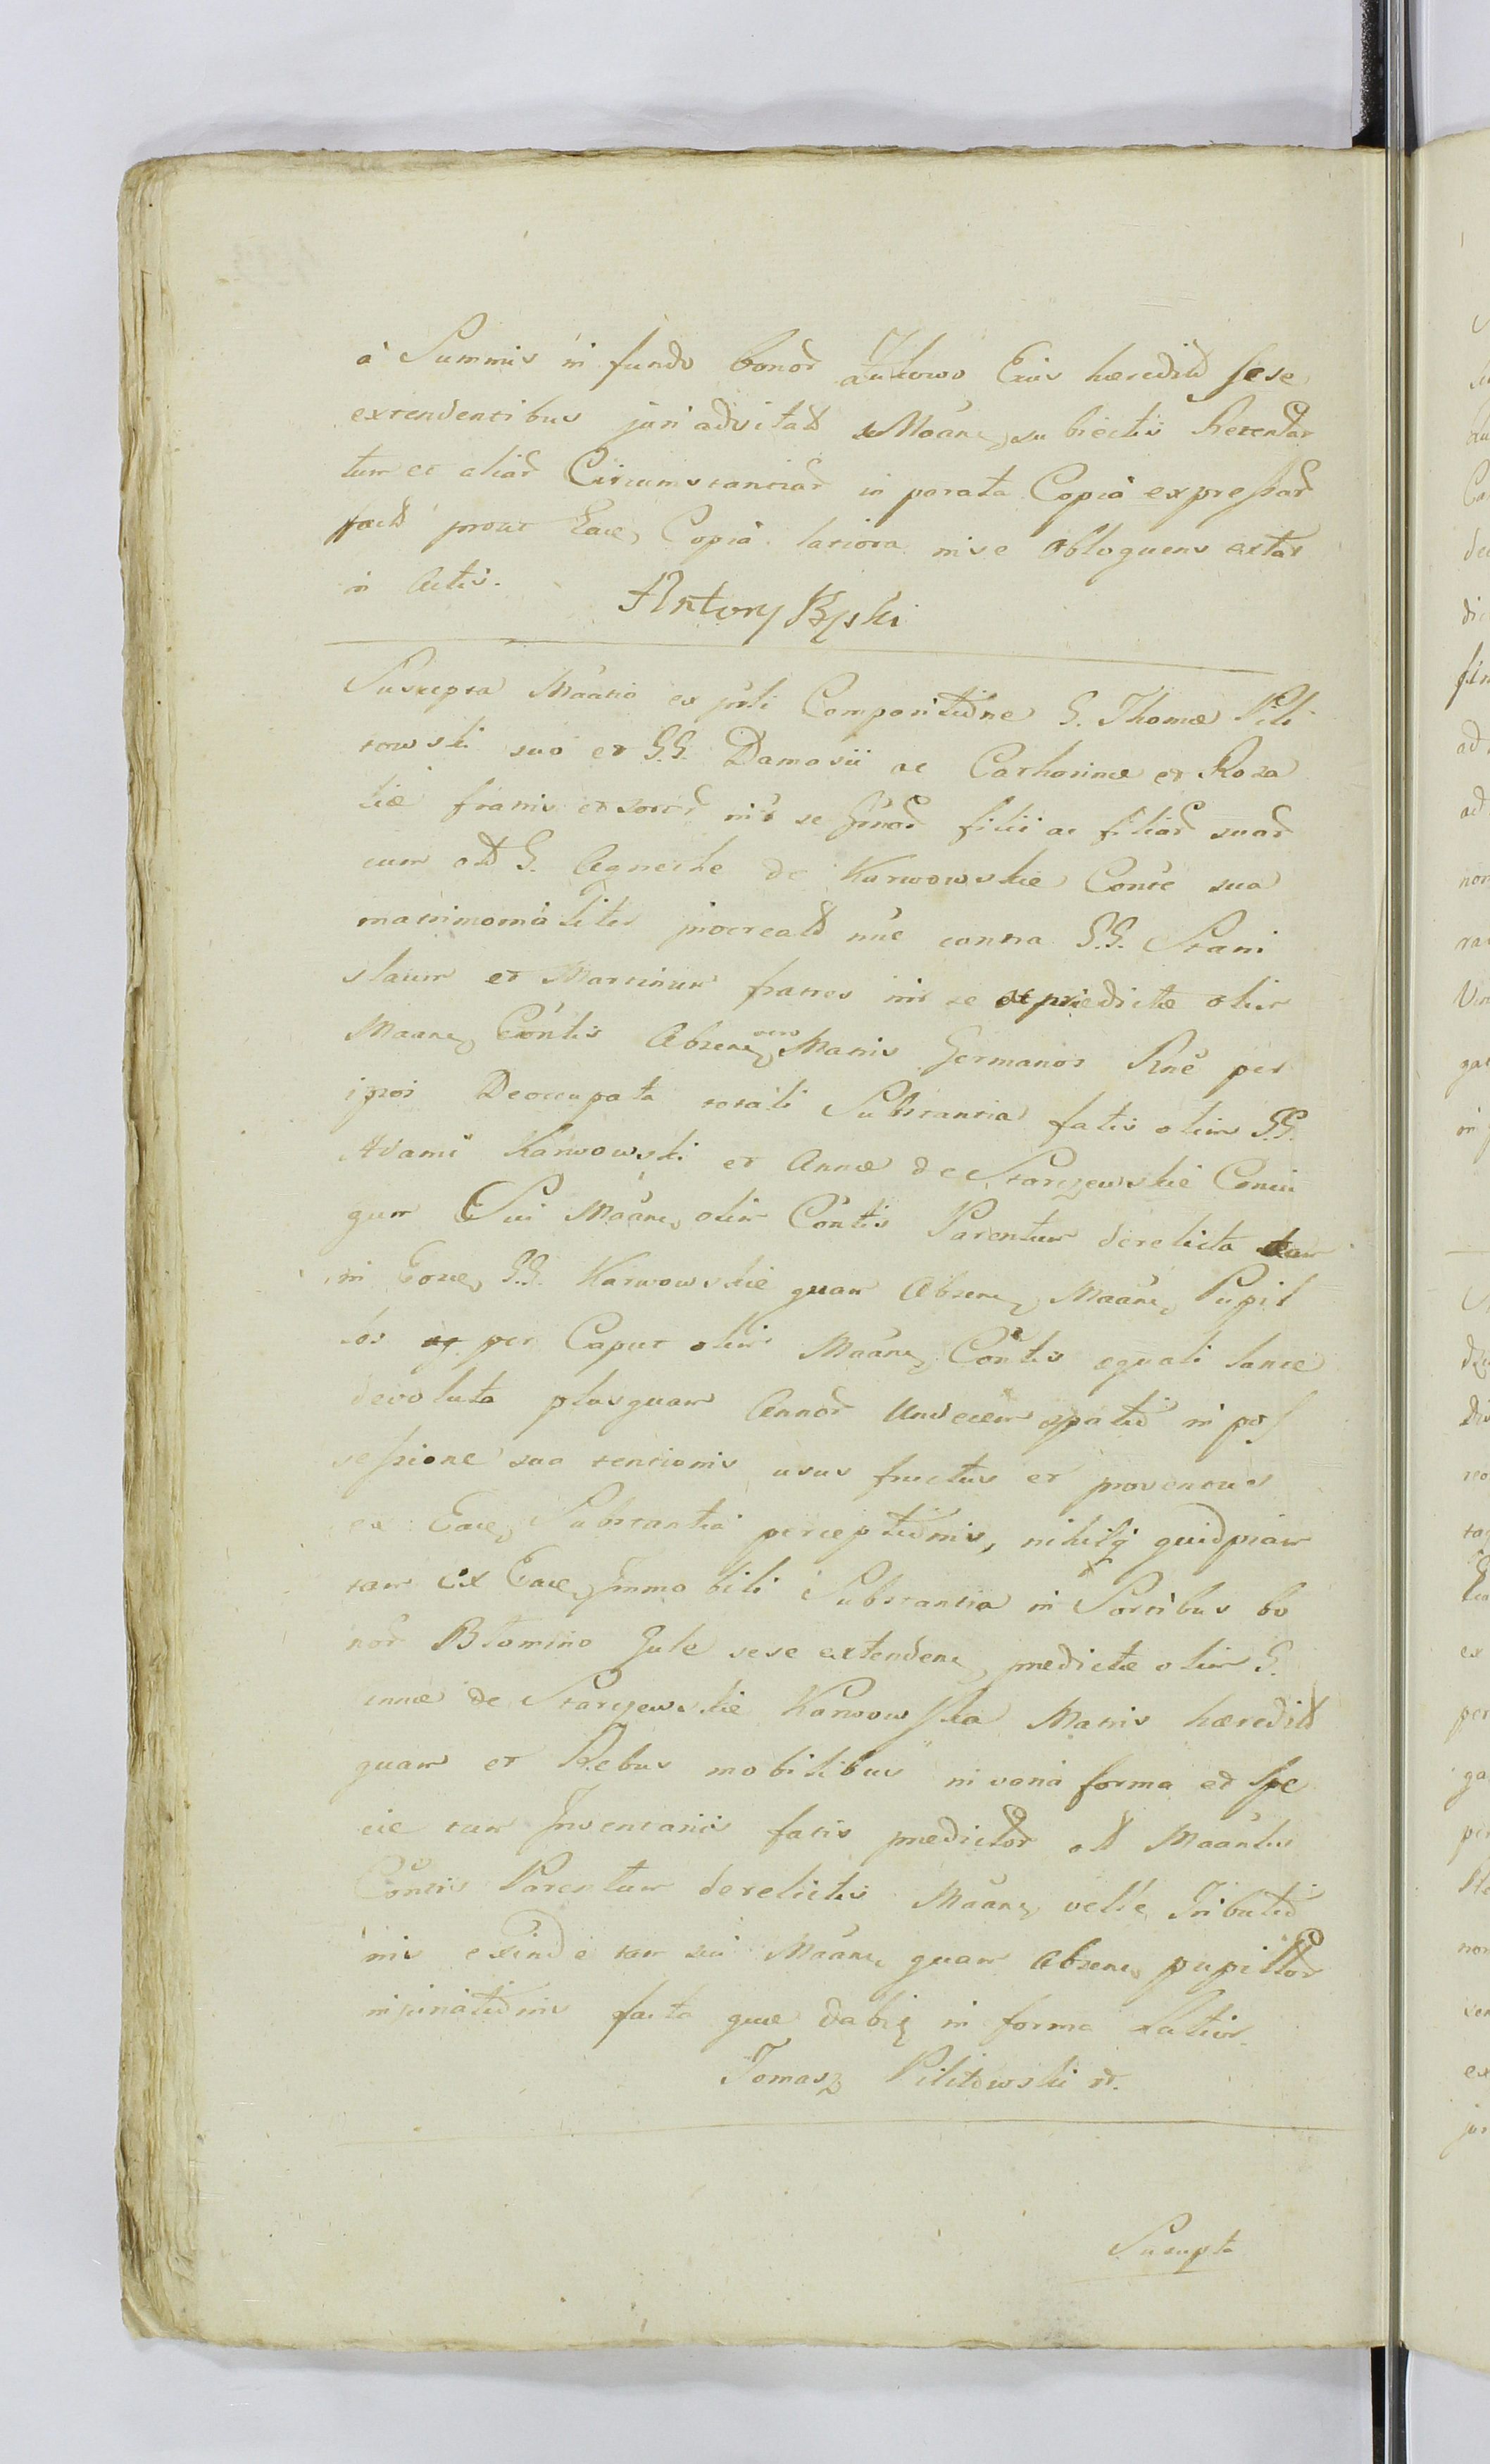 à Summis in fundo bonor Eius hæredit sese
extendentibus juri advitalit Moänej subiectis Retentar
tum et aliar Circumstantiar in porata Copia expressar
fact prout Eaiej Copia latiora nise obloquens extat
in Actis.
Antony Ryski
Suscepta Maänio ex jurli Comporitiöne G. Thomæ Pili
towski suo et G.G. Damasii ac Catharinæ et Roza
liæ fratris et soror intr se german filii ac filiar suar
cum olt G. Agneshe de Karwowskie Conte sua
matrimonialiter procreat nunc contra G.G. Stani
slaum et Martinum fratres intr se et prædictæ olim
Maanej Contis Absenej vero Matris Germanos Rne per
ipsos Deoccupata totali Substantia fatis olim G.G.
Adami Karwowski et Annæ de Starzewskie Coniu
gum Sui Maänej olim Contis Parentum derelicta tam
in Eosiej G.G. Karwowskie quam Absenej Maänej Pupil
los per Caput olim Maänej Contis equali lance
devoluta plusquam Annor Undecim spatio in pos
sessione sua tentionis usus fructus et proventus
ex Eaiej Substantia perceptiönis, nihilq quidpiam
tam ex Eaiej Immobili Substantia in Sortibus bo
nor Blomino Gule sese extendenej prædictæ olim G.
Annæ de Starzewskie Karwowska Matris hæredit
quam et Rebus mobilibus in varia forma et spe
cie tum Inventariis fatis prædictor olt Maäntis
Contis Parentum derelictis Maänej velle Tributiö
nis exinde tam sui Maänej quam Absenej pupillor
injuriatiönis facta quæ dabiq in forma latior
Tomasz Pilitowski
Suscepta